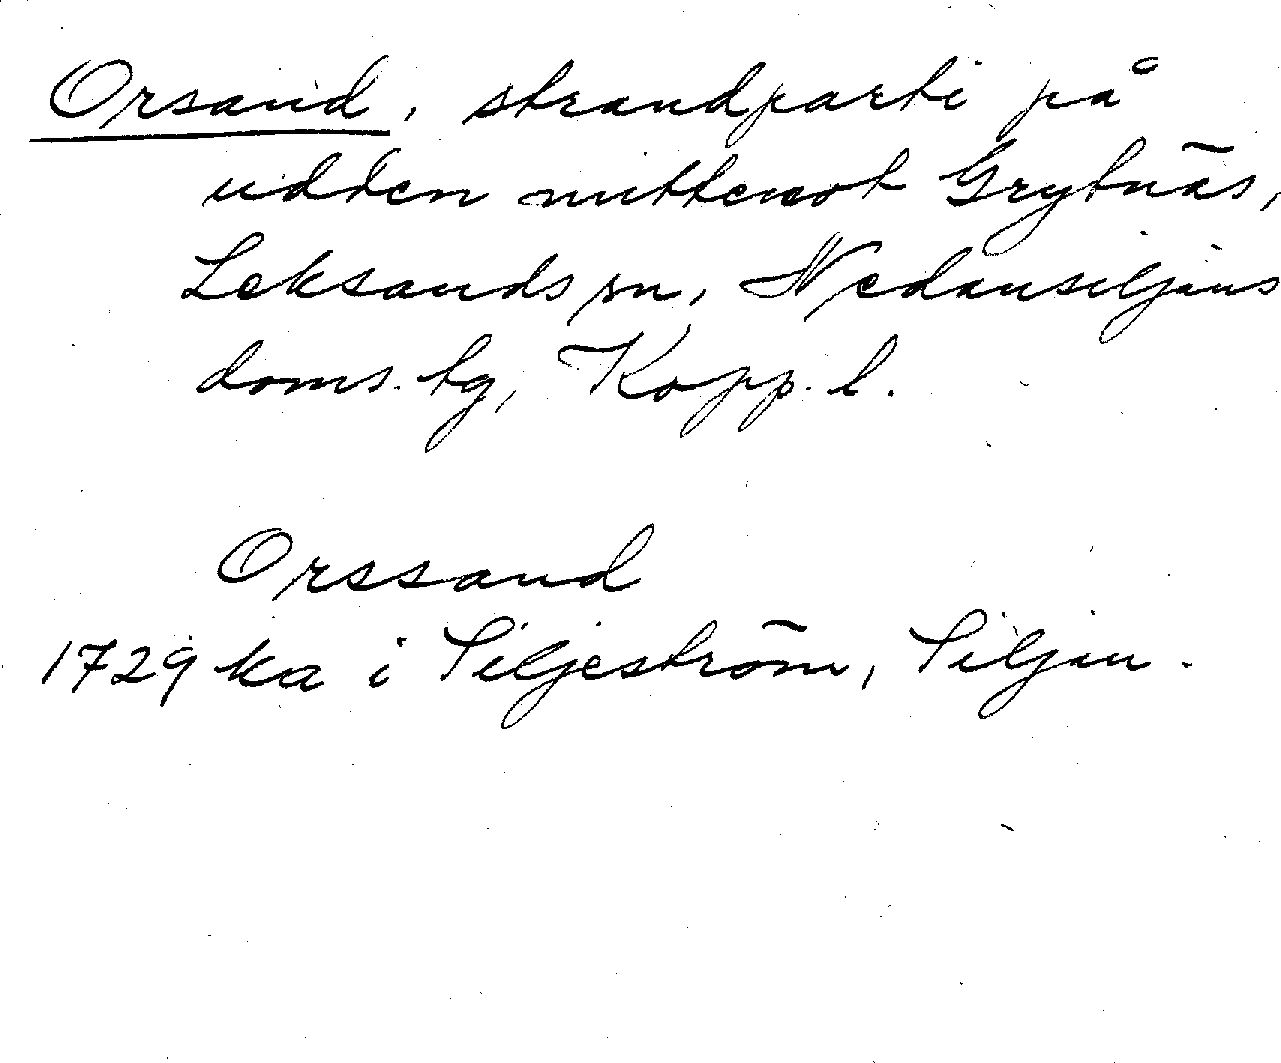 Orsand, strandparti på
udden mittemot Grytnäs,
Leksands sn, Nedansiljans
doms. tg, Kopp. l.
Orssand
1729 ka i Siljeström, Siljan.